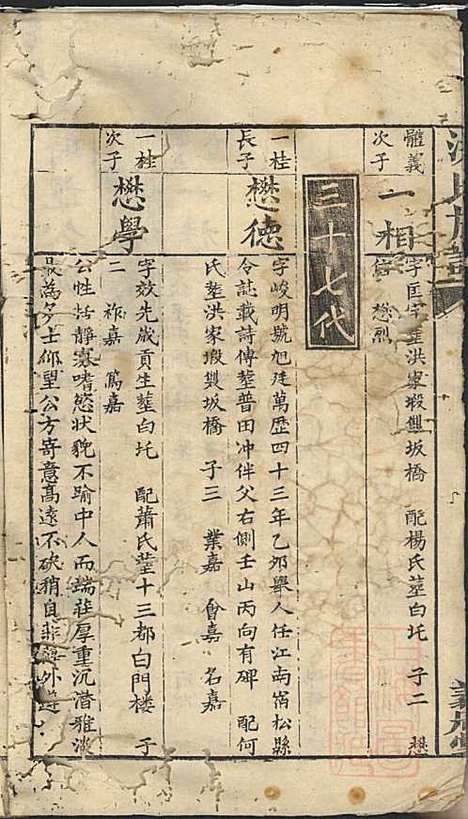 體義
次子
一相
字匡宇塟洪家塅製坂橋 配楊氏塟白圫 子二 懋
懋烈
三十七代
一桂
長子
懋德
字峻明號旭廷萬歷四十三年乙夘舉人任江南宿松縣
令誌載詩傳塟普田冲伴父右側壬山丙向有碑 配何
氏塟洪家塅製坂橋 子三 業嘉 會嘉 名嘉
一桂
次子
懋學
字效先歲貢生塟白圫 配蕭氏塟十三都白門樓 子
二 祚嘉 篤嘉
公性括靜寡嗜慾狀貌不踰中人而端莊厚重沉潛雅淡
最為多士仰望公方寄意高遠不硋稍自非
外